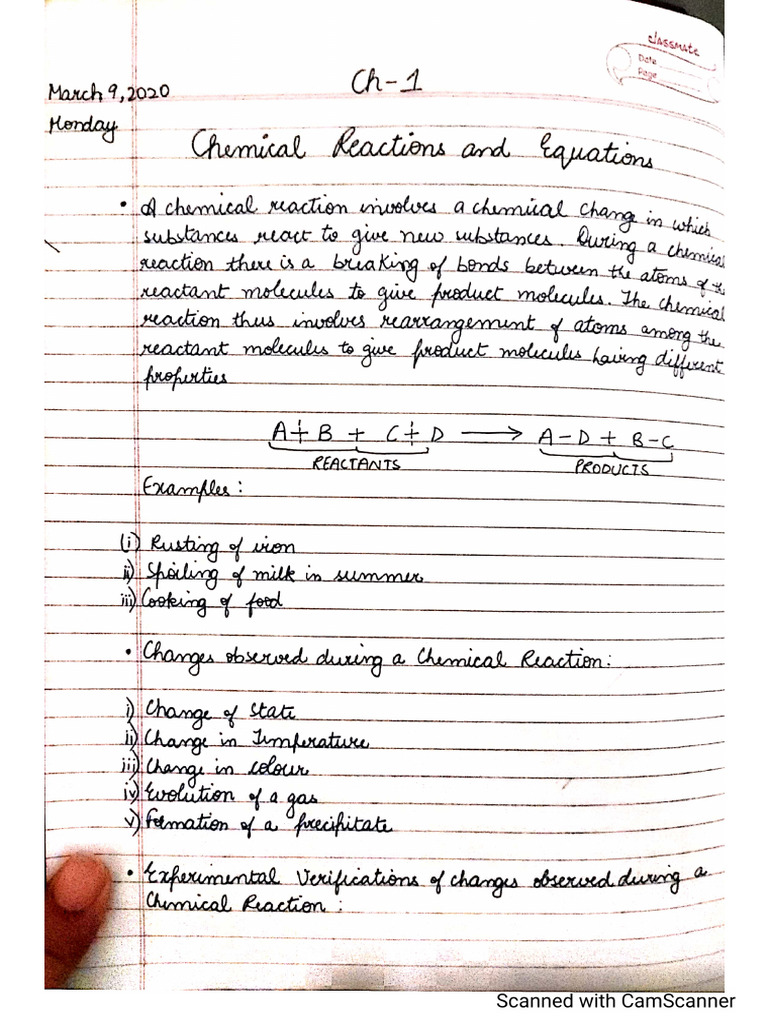 classmate
Date
Page
Ch-1
March 9, 2020
Monday
Chemical Reactions and Equations
• A chemical reaction involves a chemical change in which
substances react to give new substances. During a chemical
reaction there is a breaking of bonds between the atoms of the
reactant molecules to give product molecules. The chemical
reaction thus involves rearrangement of atoms among the
reactant molecules to give product molecules having different
properties
A + B + C + D → A-D + B-C
REACTANTS PRODUCTS
Examples:
(i) Rusting of iron
ii) Spoiling of milk in summer
iii) Cooking of food
• Changes observed during a Chemical Reaction:
i) Change of State
ii) Change in Temperature
iii) Change in colour
iv) Evolution of a gas
v) Formation of a precipitate
• Experimental Verifications of changes observed during a
Chemical Reaction:
Scanned with CamScanner